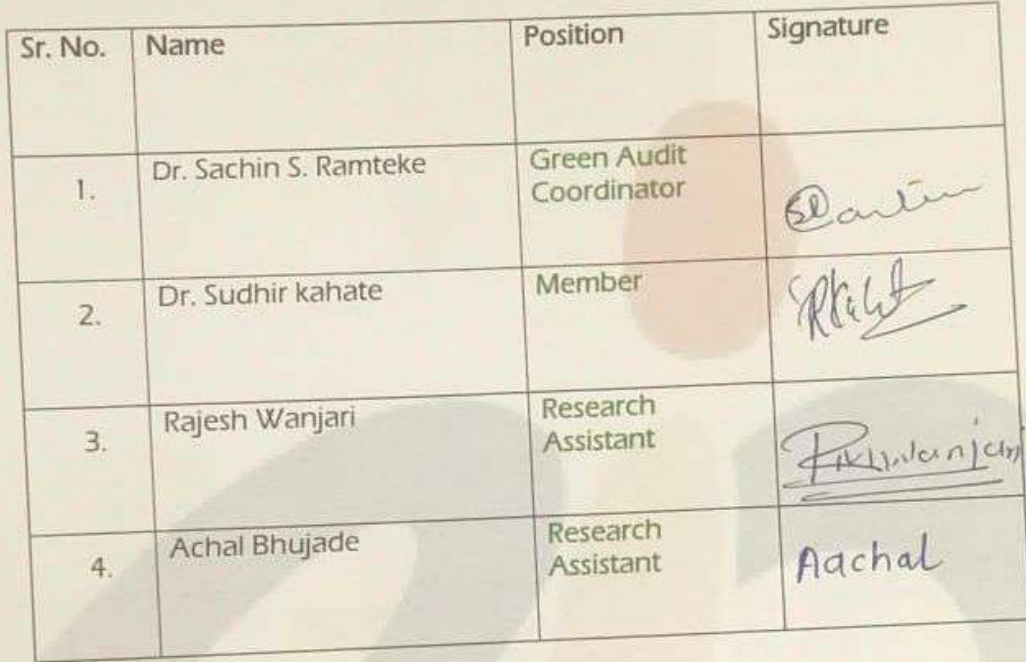 Sr. No. Name Position Signature
1. Dr. Sachin S. Ramteke Green Audit
Coordinator
2. Dr. Sudhir kahate Member
3. Rajesh Wanjari Research
Assistant
4. Achal Bhujade Research
Assistant Aachal